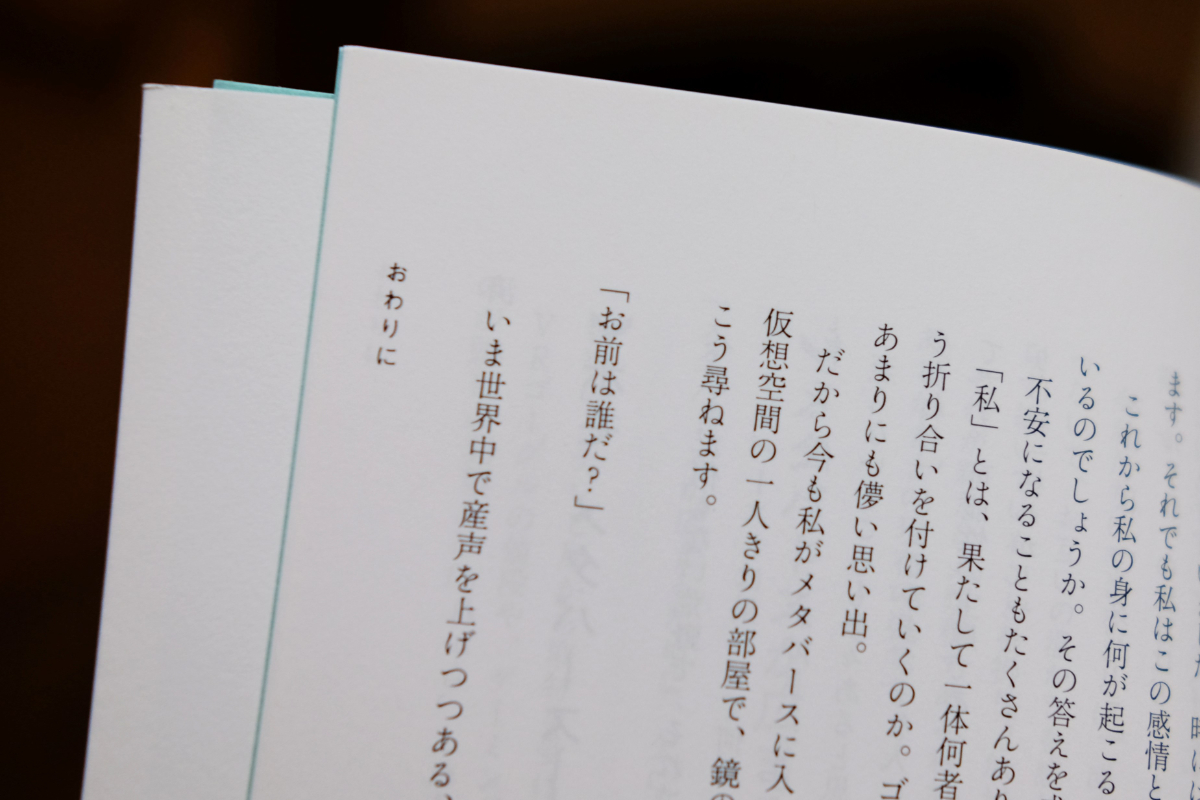 ます。それでも私はこの感情と
これから私の身に何が起こる
いるのでしょうか。その答えを
不安になることもたくさんあり
「私」とは、果たして一体何者
う折り合いを付けていくのか。ゴ
あまりにも儚い思い出。
だから今も私がメタバースに入
仮想空間の一人きりの部屋で、鏡の
こう尋ねます。
「お前は誰だ?」
いま世界中で産声を上げつつある、
おわりに